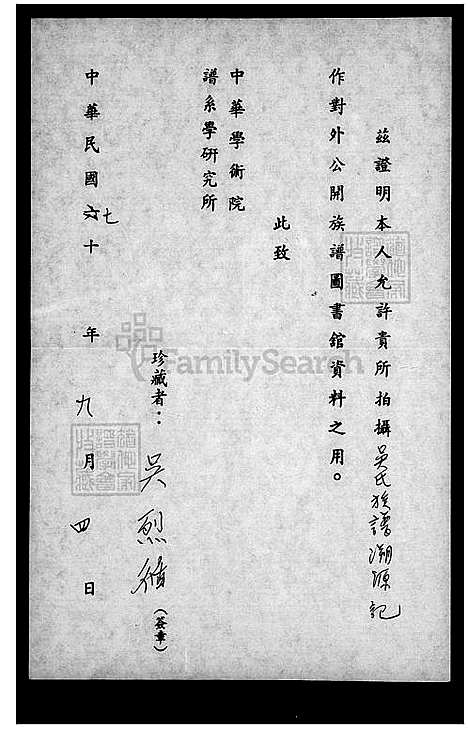 茲證明本人允許貴所拍攝吳氏族譜溯源記
作對外公開族譜圖書館資料之用。
此致
中華學術院
譜系學研究所
珍藏者：吳烈脩（簽章）
中華民國六十七年九月四日
FamilySearch